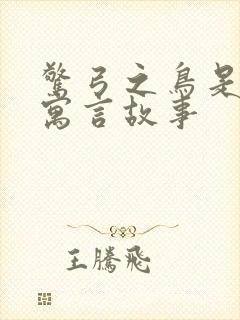 驚弓之鳥是
寓言故事
王騰飛